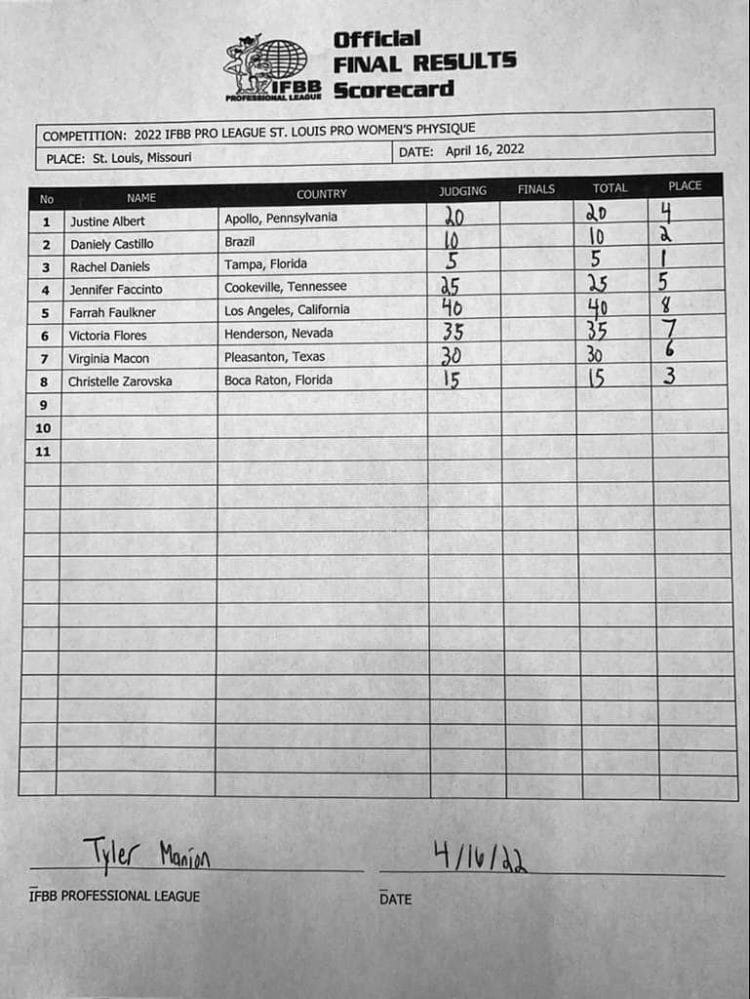 Official
FINAL RESULTS
Scorecard
IFBB
PROFESSIONAL LEAGUE
COMPETITION: 2022 IFBB PRO LEAGUE ST. LOUIS PRO WOMEN'S PHYSIQUE
PLACE: St. Louis, Missouri DATE: April 16, 2022
No NAME COUNTRY JUDGING FINALS TOTAL PLACE
1 Justine Albert Apollo, Pennsylvania 20 20 4
2 Daniely Castillo Brazil 10 10 2
3 Rachel Daniels Tampa, Florida 5 5 1
4 Jennifer Faccinto Cookeville, Tennessee 25 25 5
5 Farrah Faulkner Los Angeles, California 40 40 8
6 Victoria Flores Henderson, Nevada 35 35 7
7 Virginia Macon Pleasanton, Texas 30 30 6
8 Christelle Zarovska Boca Raton, Florida 15 15 3
9
10
11
Tyler Manion 4/16/22
IFBB PROFESSIONAL LEAGUE DATE